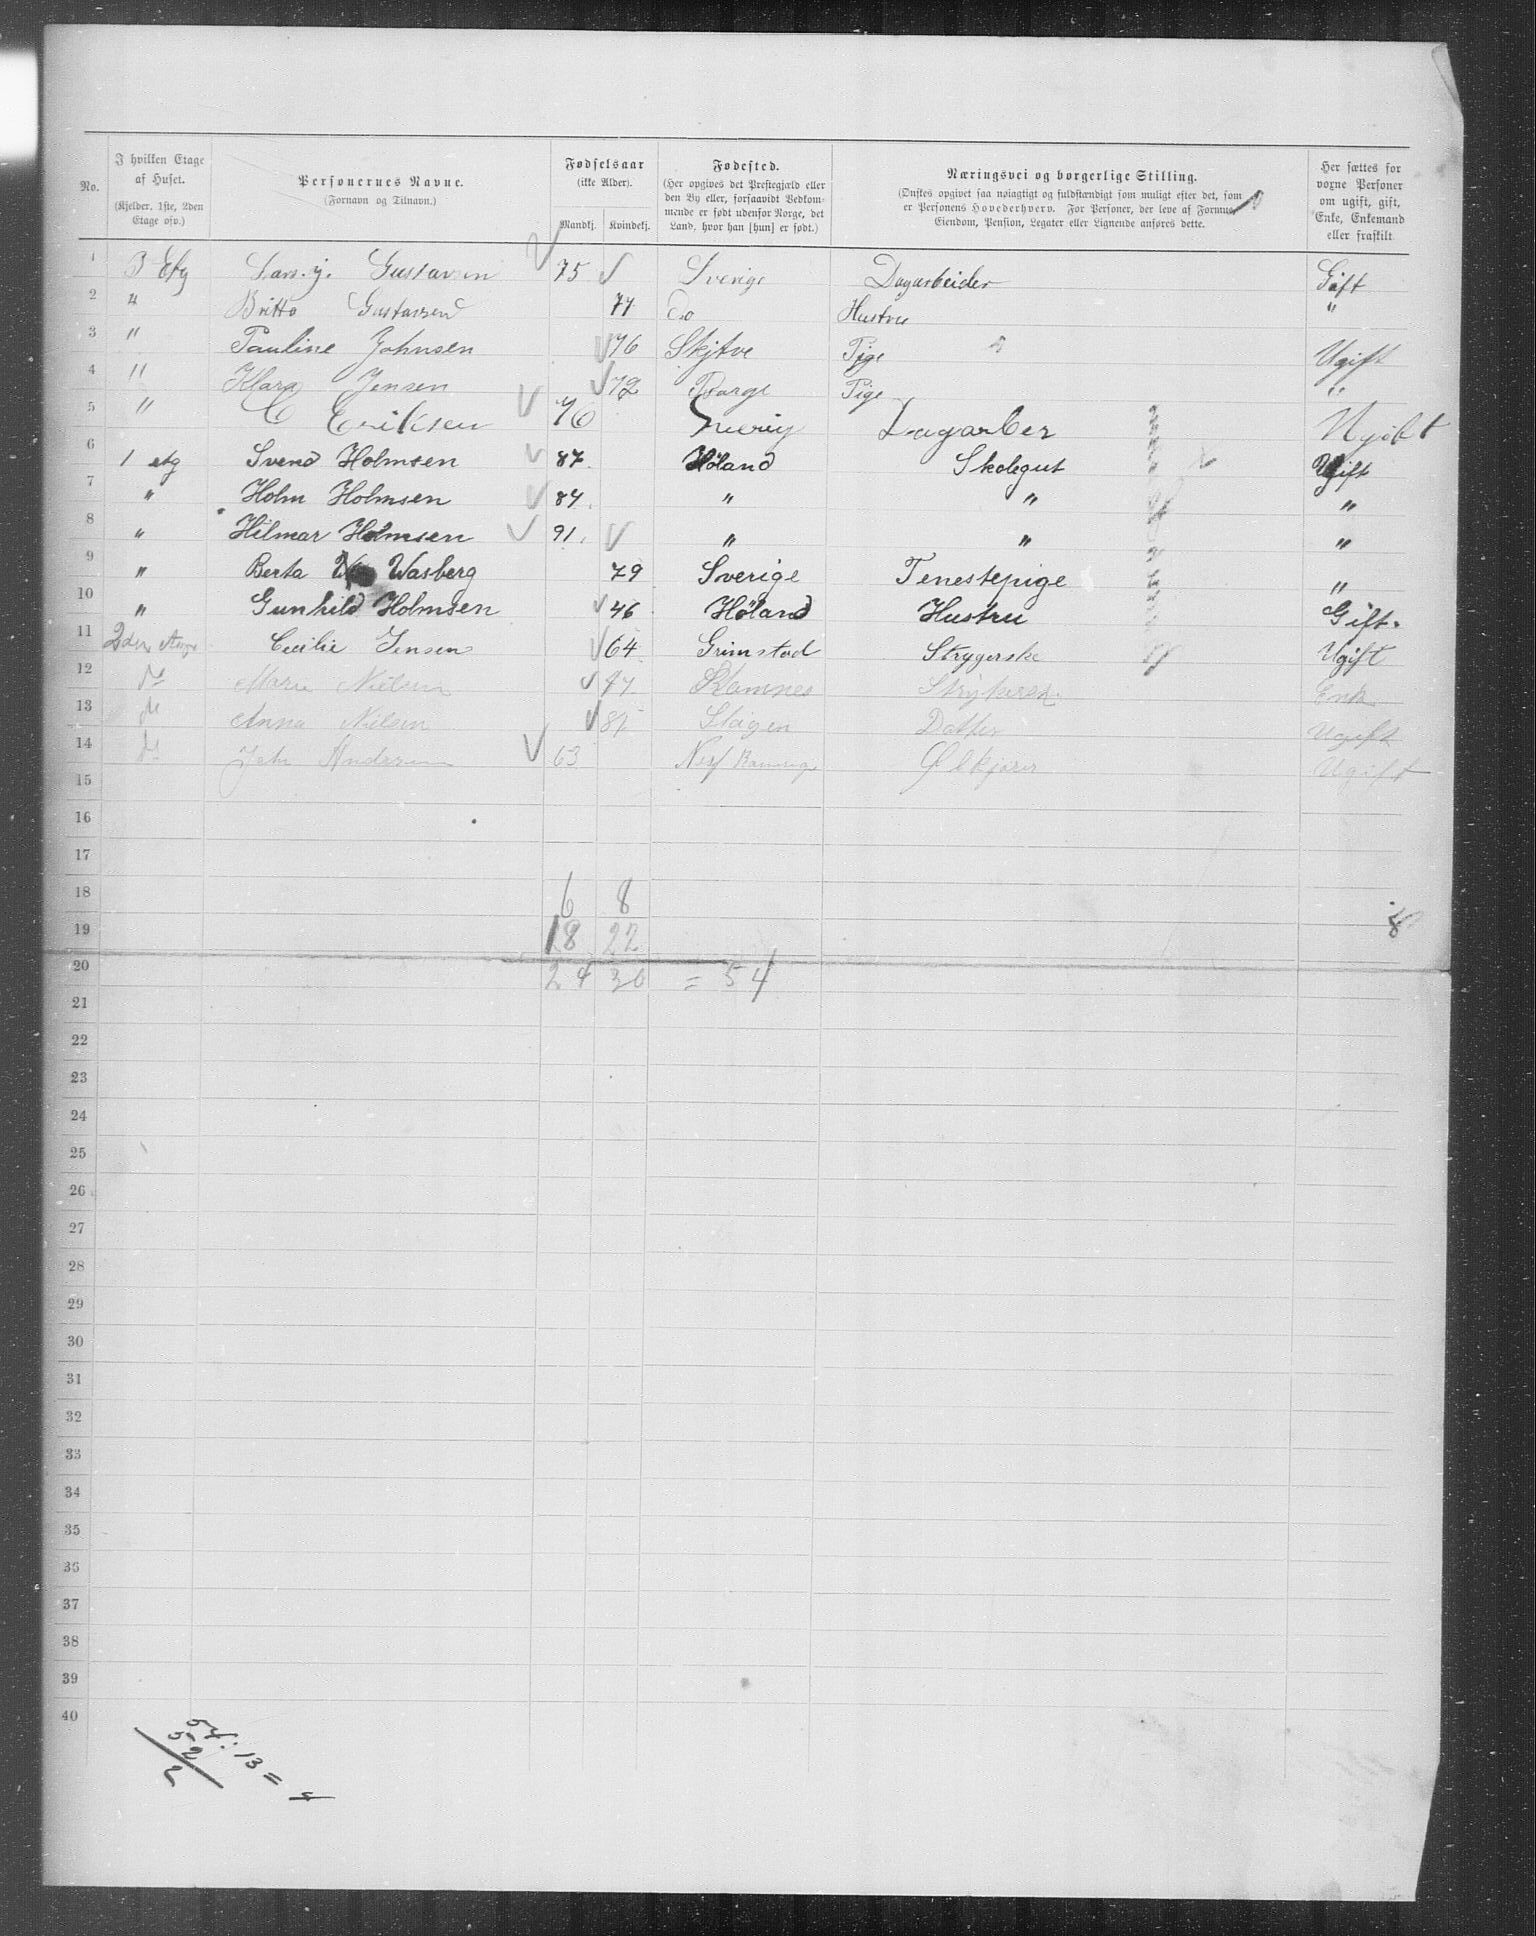 No.
I hvilken Etage af Huset. (Kjelder, 1ste, 2den Etage osv.)
Personernes Navne. (Fornavn og Tilnavn.)
Fødselsaar (ikke Alder). Mandkj. Kvindekj.
Fødested. (Her opgives det Prestegjæld eller den By eller, forsaavidt Vedkommende er født udenfor Norge, det Land, hvor han [hun] er født.)
Næringsvei og borgerlige Stilling. (Ønskes opgivet saa nøiagtigt og fuldstændigt som muligt efter det, som er Personens Hovederhverv. For Personer, der leve af Formue, Eiendom, Pension, Legater eller Lignende anføres dette.)
Her sættes for voxne Personer om ugift, gift, Enke, Enkemand eller fraskilt.
1 3 Etg Gustavsen 75 Sverige Dagarbeider Gift
2 " Britta Gustavsen 77 Do Hustru "
3 " Pauline Johnsen 76 Skjtve Pige Ugift
4 " Klara Jensen 72 Borge Pige "
5 " C Eriksen 76 Sverig Dagarber Ujift
6 1 etg Svend Holmsen 87. Høland Skolegut Ugift
7 " Holm Holmsen 84. " " "
8 " Hilmar Holmsen 91. " " "
9 " Berta Wasberg 79 Sverige Tenestepige "
10 " Gunhild Holmsen 46 Høland Hustru Gift.
11 2den Cecilie Jensen 64 Grimstad Strygerske Ugift
12 do Marie Nielsen 47 Enke
13 do Anna Nilsen Datter Ugift
14 do 63 Nes Romerige Ølkjører Ugift
15
16
17
18 6 8
19 18 22
20 24 30 = 54
21
22
23
24
25
26
27
28
29
30
31
32
33
34
35
36
37
38
39
40
54 : 13 = 4
52
2